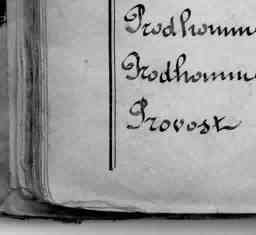 Prodhomm
Prodhomm
Provost